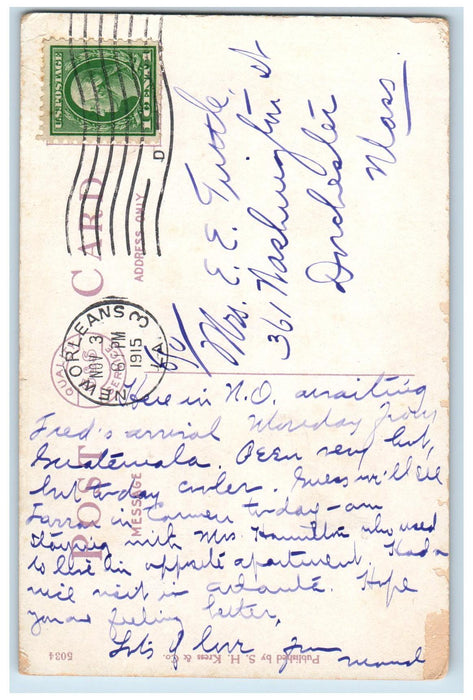 U.S. POSTAGE
1 CENT 1
POST CARD
ADDRESS ONLY
MESSAGE
D
NEW ORLEANS 3
NOV 3
6 PM
1915
LA.
Mrs. E. E. Tuttle,
361 Washington St
Dorchester
Mass.
Here in N.O. awaiting
Fred's arrival Monday from
Guatemala. Been very hot,
but today cooler. Guess we'll see
Farrar in Carmen today - am
staying with Mrs. Hamilton who used
to live in opposite apartment. Had a
nice visit in Atlanta. Hope
you are feeling better,
Lots of love from
Published by S. H. Kress & Co.
5034